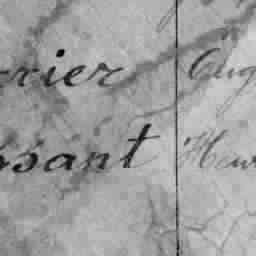 rrier Eug
ssant Hen